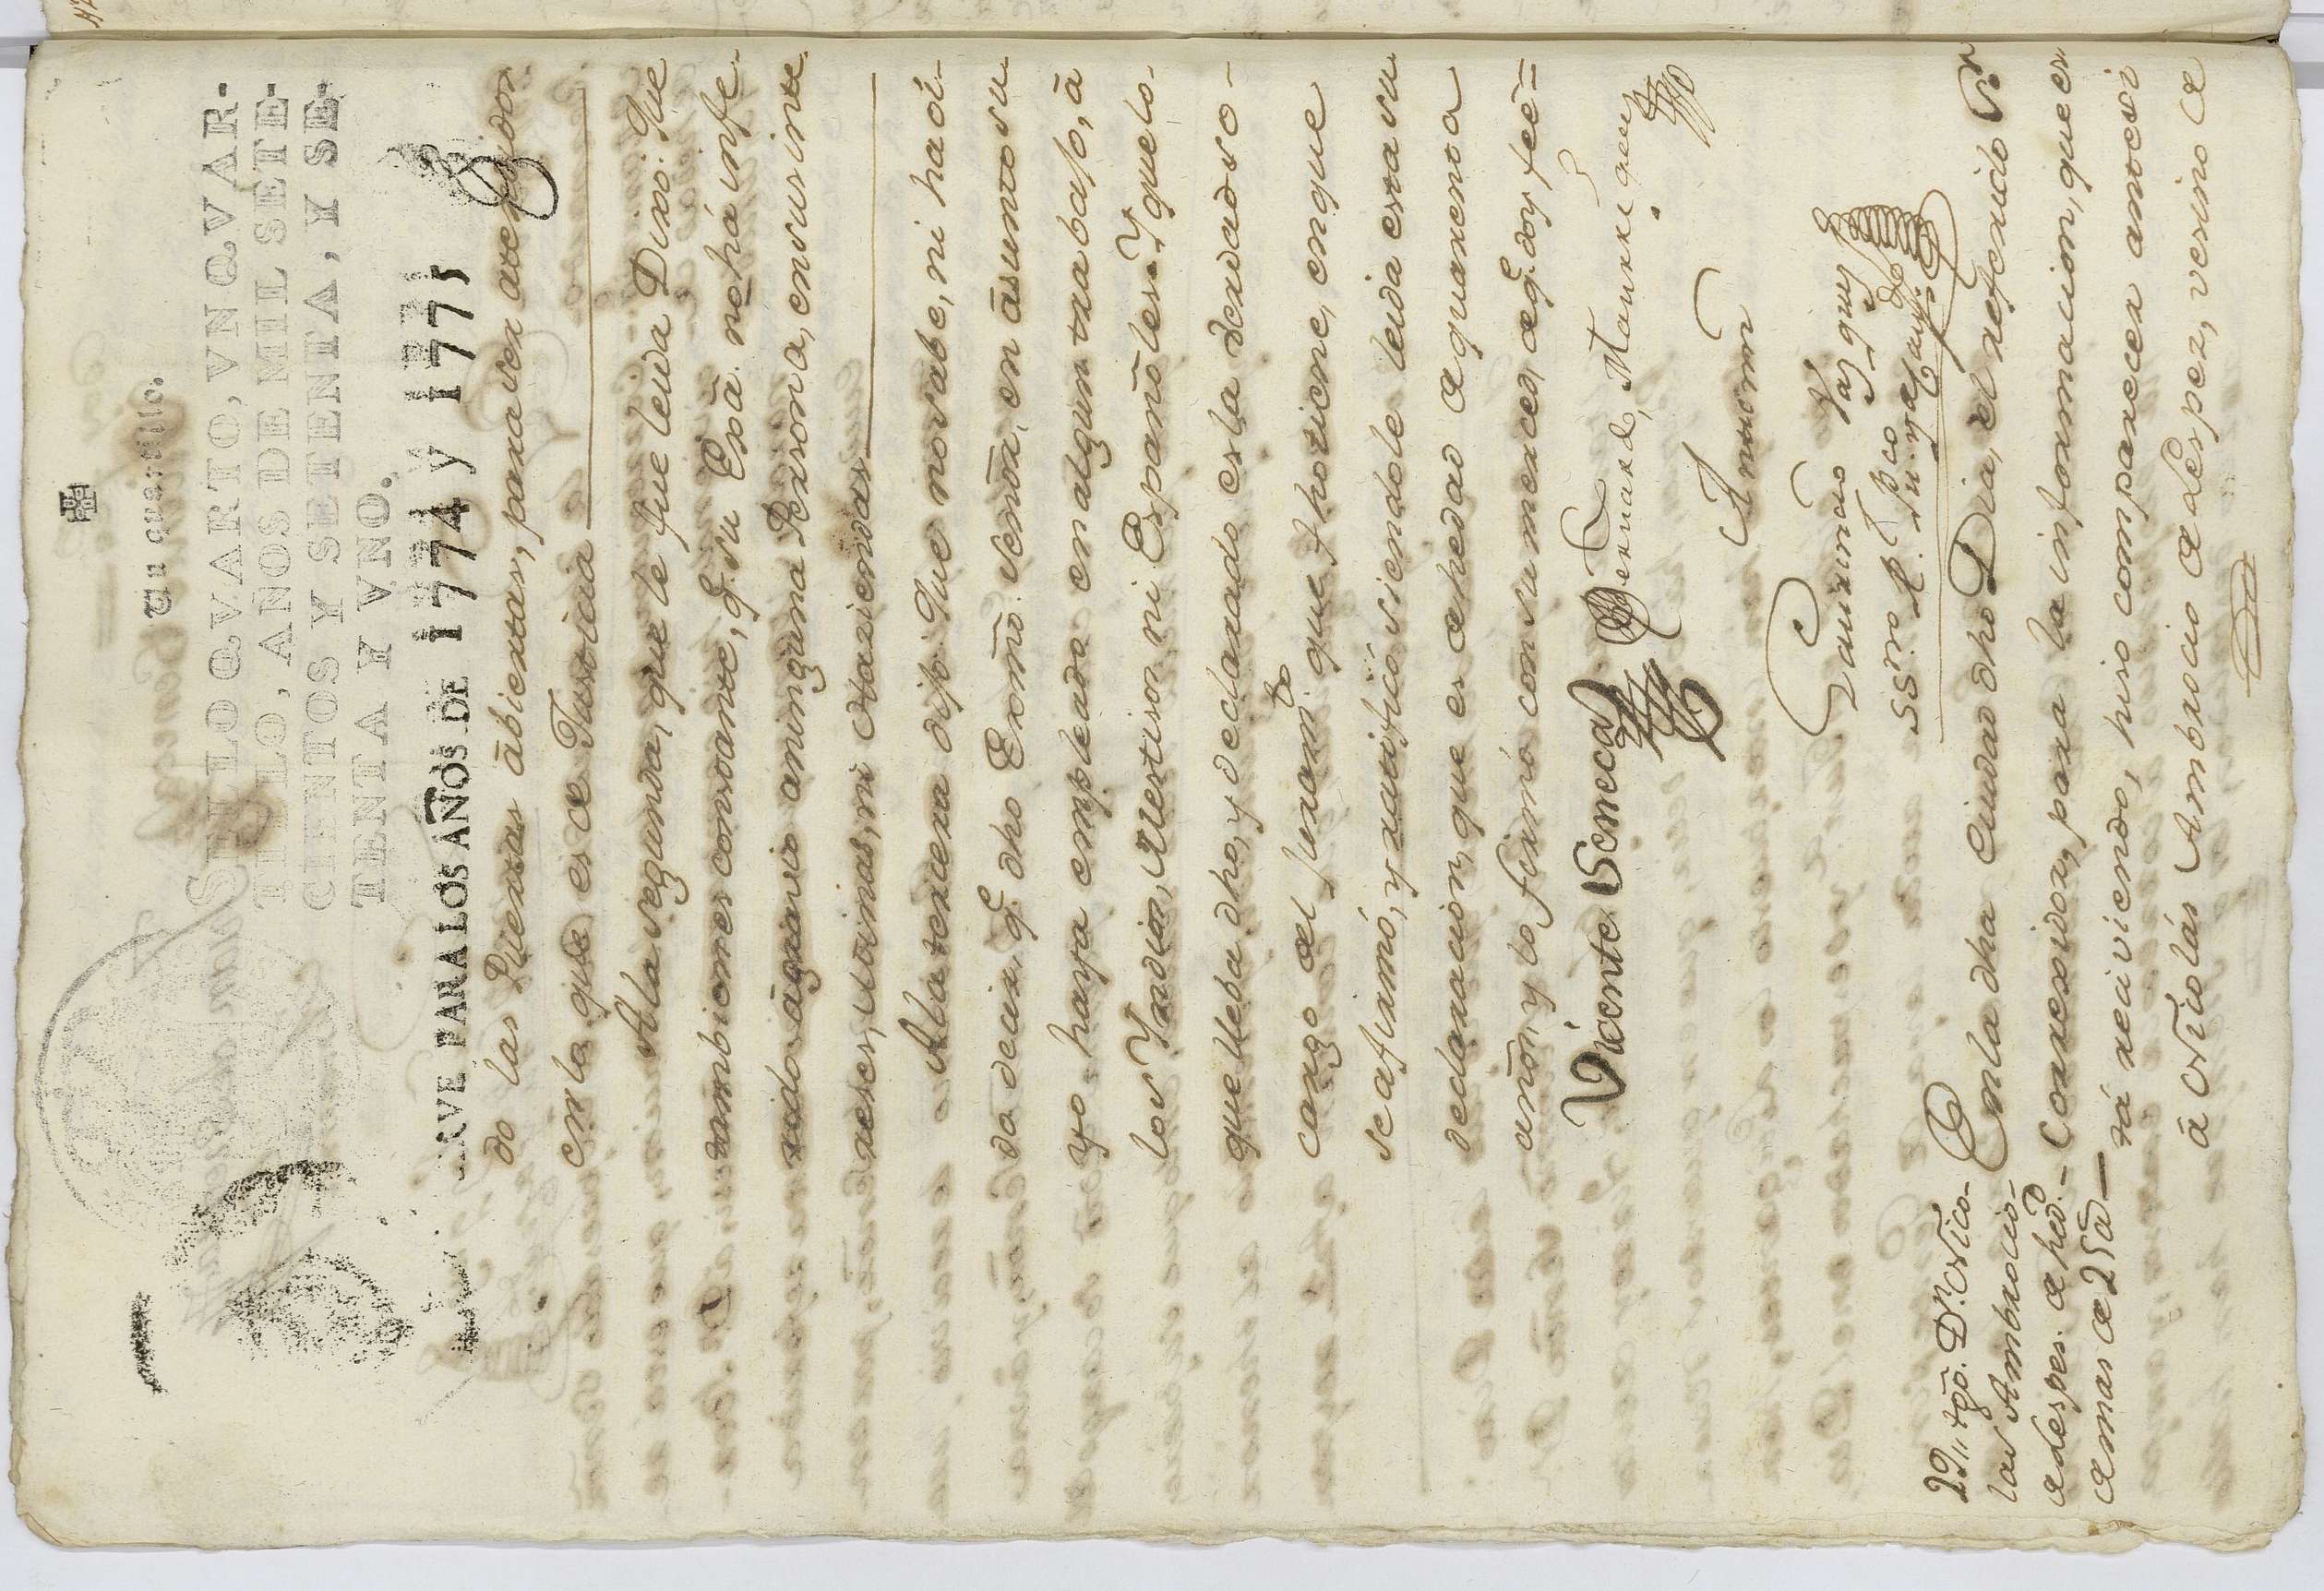 Un quartillo.
SELLO QVARTO, VN QVAR-
TILLO, AÑOS DE MIL SETE-
CIENTOS Y SETENTA, Y SE-
TENTA Y VNO.
PARA LOS AÑOS DE 1774 y 1775
do las Puertas âbiertas, para ser atendidos
en lo que es de Justicia
A la segunda, que le fue leida Dixo: Que
tambien es constante, q.e su Exâ. no há infe-
rido âgravio aninguna Persona, en sus inte-
reses, minas, ni Haziendas
A la tercera dijo Que no sabe, ni ha oi-
do decir, q.e dho Exmô. Señor, en âsumto su-
yo haya empleado en algun trabajo, â
los Yndios, Mestisos ni Españoles: Y que lo
que lleba dho, y declarado es la verdad so-
cargo del juram.to que fho tiene, en que
se afirmó, y ratificó siendole leida esta su
declaracion, que es de hedad de quarenta
años, y lo firmó con su merced, de q.e doy feê=
Vicente Seneca
Bernardo,
Antemi
Laurencio
SS.no R. Pu.co
29,, tgo. D.n Nico-
las Ambrocio
de Lespes. de hed.d
de mas de 25 a
En la dha Ciudad dho Dia, el referido S.r
Corregidor, para la informacion, que es
tá reciviendo, hiso comparecer ante si
â Nicolás Ambrocio de Lespez, vecino de